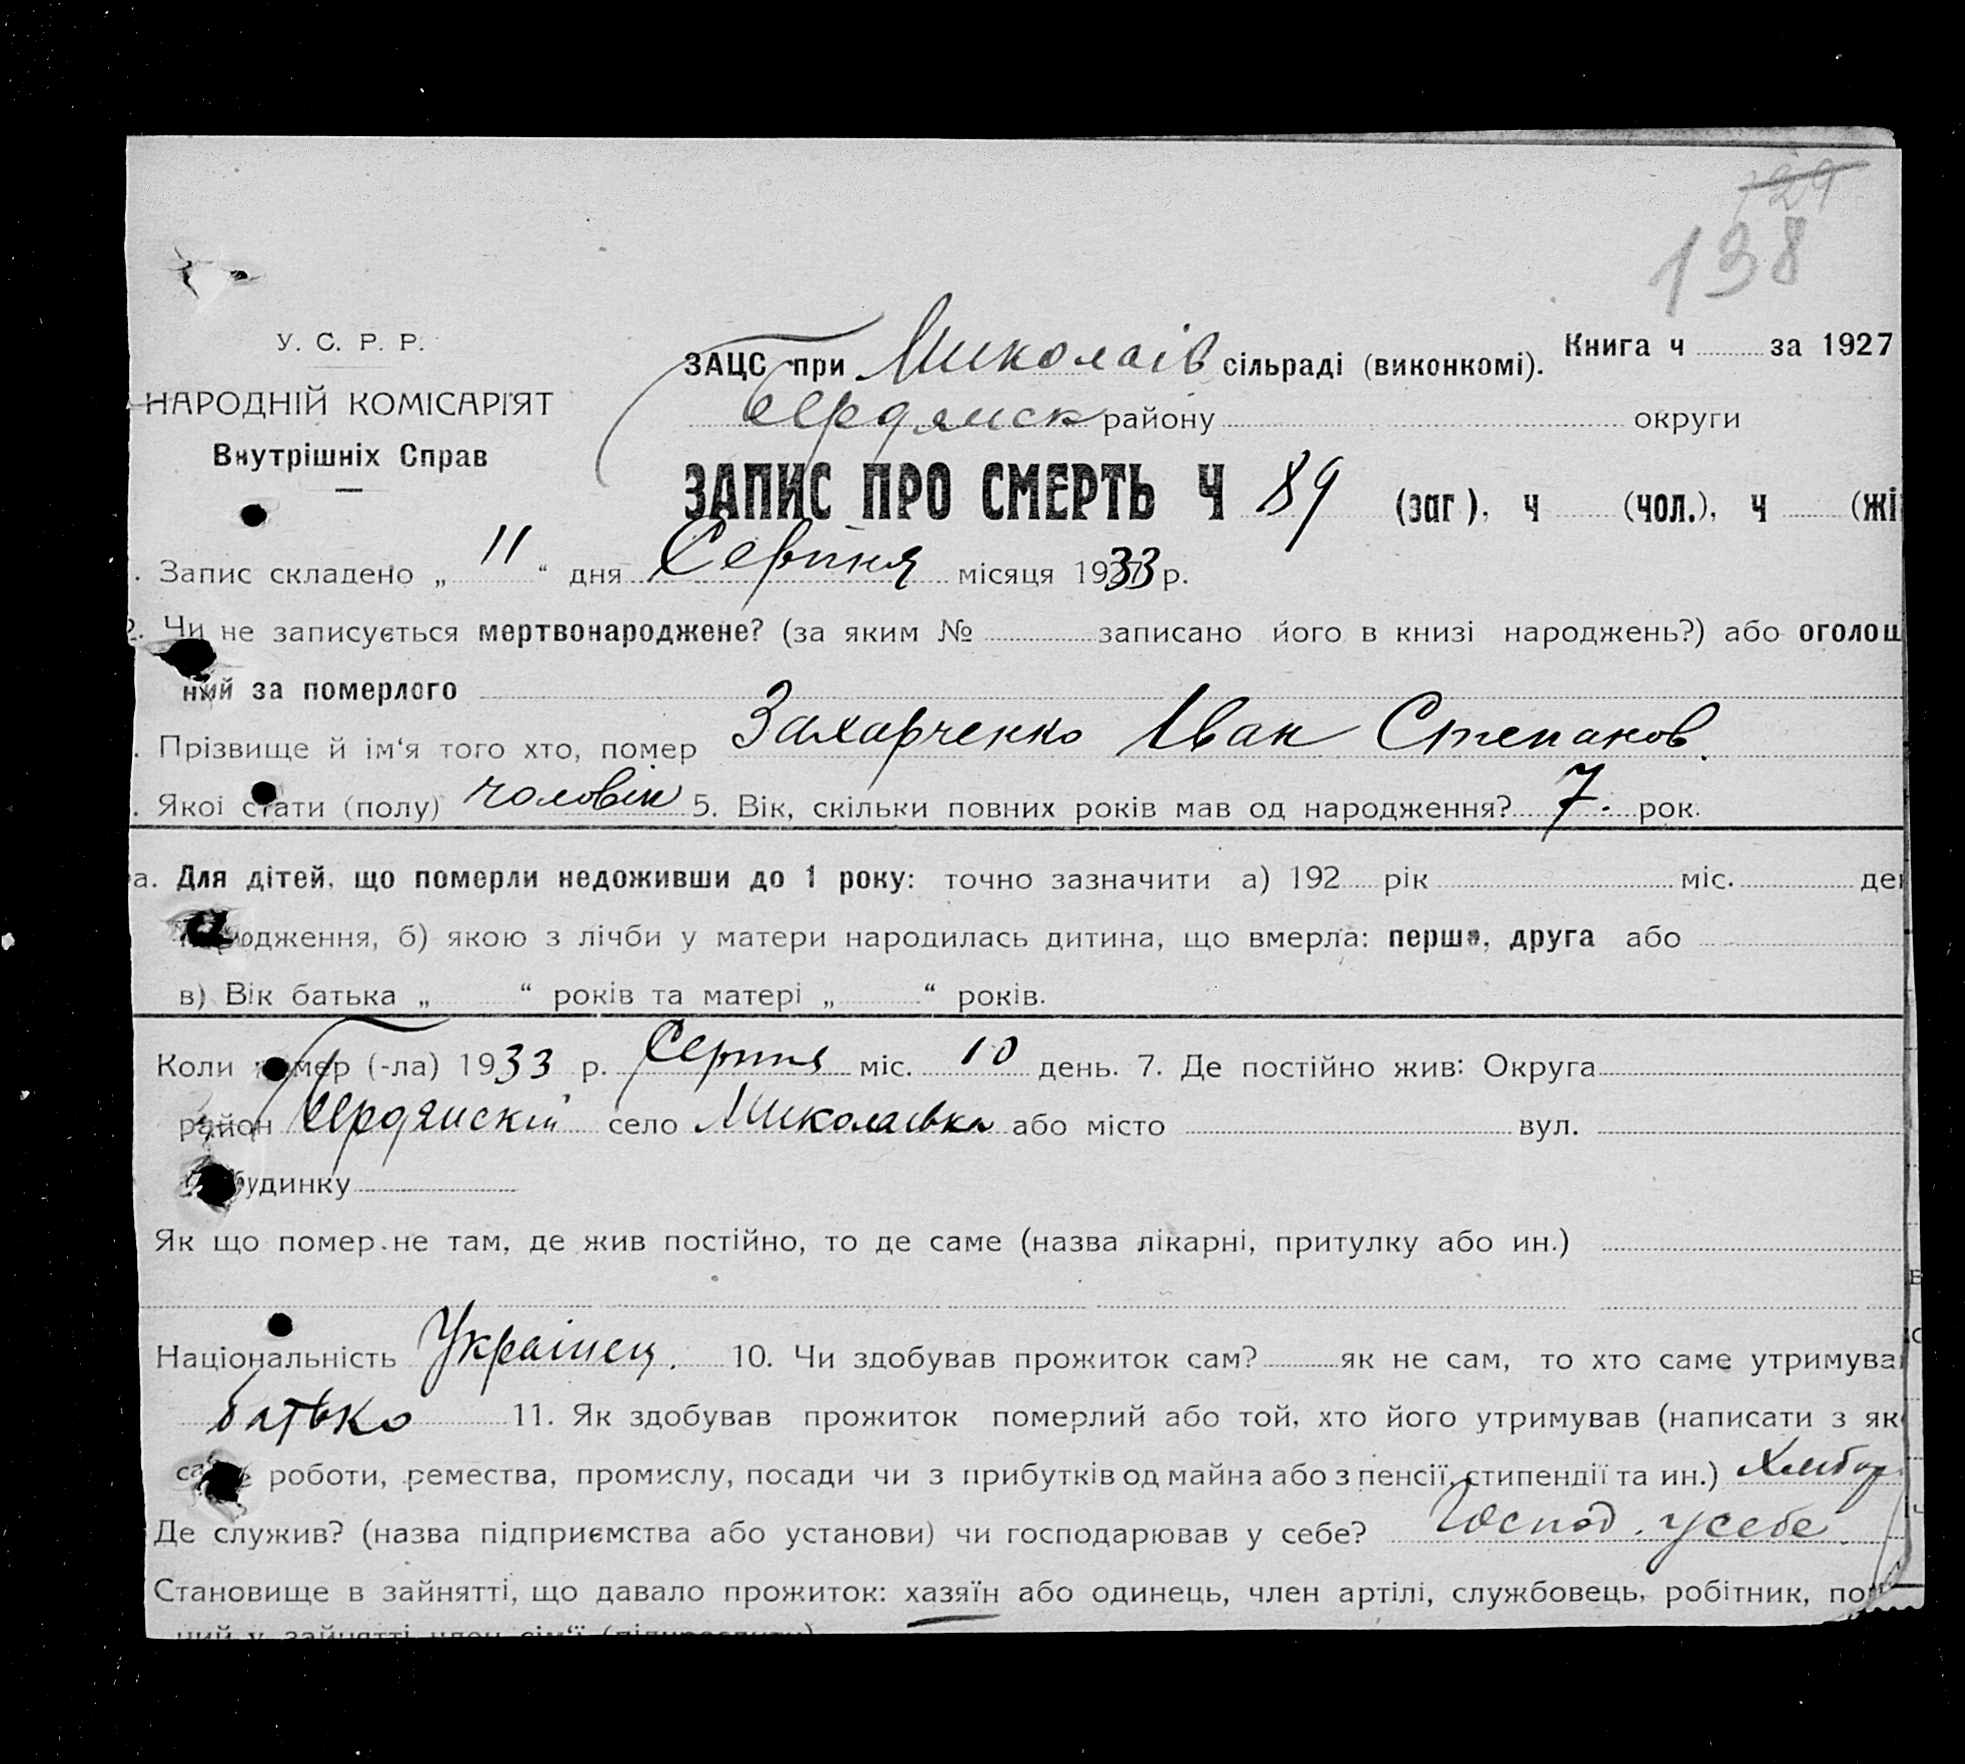 129
138
У. С. Р. Р.
НАРОДНІЙ КОМІСАРІЯТ
Внутрішніх Справ
Книга ч за 1927
ЗАЦС при Миколаїв сільраді (виконкомі).
Бердянск району округи
ЗАПИС ПРО СМЕРТЬ Ч 89 (заг), ч (чол.), ч (жі
. Запис складено „ 11 “ дня Серпня місяця 1933 р.
2. Чи не записується мертвонароджене? (за яким № записано його в книзі народжень?) або оголош
ний за померлого
. Прізвище й ім‘я того хто, помер Захарченко Іван Степанов.
. Якої стати (полу) чоловік 5. Вік, скільки повних років мав од народження? 7. рок.
а. Для дітей, що померли недоживши до 1 року: точно зазначити а) 192 рік міс. ден
родження, б) якою з лічби у матери народилась дитина, що вмерла: перша, друга або
в) Вік батька „ “ років та матері „ “ років.
Коли помер (-ла) 1933 р. Серпня міс. 10 день. 7. Де постійно жив: Округа
район Бердянский село Миколаївка або місто вул.
будинку
Як що помер не там, де жив постійно, то де саме (назва лікарні, притулку або ин.)
Національність Украінец. 10. Чи здобував прожиток сам? як не сам, то хто саме утримував
батько 11. Як здобував прожиток померлий або той, хто його утримував (написати з як
роботи, ремества, промислу, посади чи з прибутків од майна або з пенсії, стипендії та ин.) Хлібор
Де служив? (назва підприємства або установи) чи господарював у себе? Господ. у себе
Становище в зайнятті, що давало прожиток: хазяїн або одинець, член артілі, службовець, робітник, пом
ний у зайнятті член сім‘ї (підкреслити)